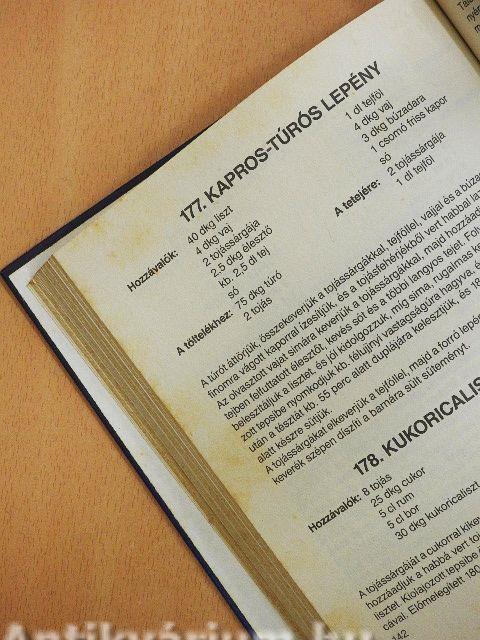 177. KAPROS-TÚRÓS LEPÉNY
Hozzávalók: 40 dkg liszt
4 dkg vaj
2 tojássárgája
2.5 dkg élesztő
kb. 2.5 dl tej
só
A töltelékhez: 75 dkg túró
2 tojás
1 dl tejföl
4 dkg vaj
3 dkg búzadara
1 csomó friss kapor
só
A tetejére: 2 tojássárgája
1 dl tejföl
A túrót áttörjük, összekeverjük a tojássárgákkal, tejföllel, vajjal és a búza
finomra vágott kaporral ízesítjük, és a tojásfehérjékből vert habbal
Az olvasztott vajat simára keverjük a tojássárgákkal, majd hozzáad
tejben felfuttatott élesztőt, kevés sót és a többi langyos tejet.
beleszitáljuk a lisztet, és jól kidolgozzuk, míg sima, rugalmas
zott tepsibe nyomkodjuk kb. félujjnyi vastagságúra hagyva,
után a tésztát kb. 55 perc alatt duplájára kelesztjük, és 18
alatt készre sütjük.
A tojássárgákat elkeverjük a tejföllel, majd a forró lepény
keverék szépen díszíti a barnára sült süteményt.
178. KUKORICALIS
Hozzávalók: 8 tojás
25 dkg cukor
5 cl rum
5 cl bor
30 dkg kukoricaliszt
A tojássárgáját a cukorral kikev
hozzáadjuk a habbá vert toj
lisztet. Kiolajozott tepsibe
cával. Előmelegített 180
142
Antikvárium.hu